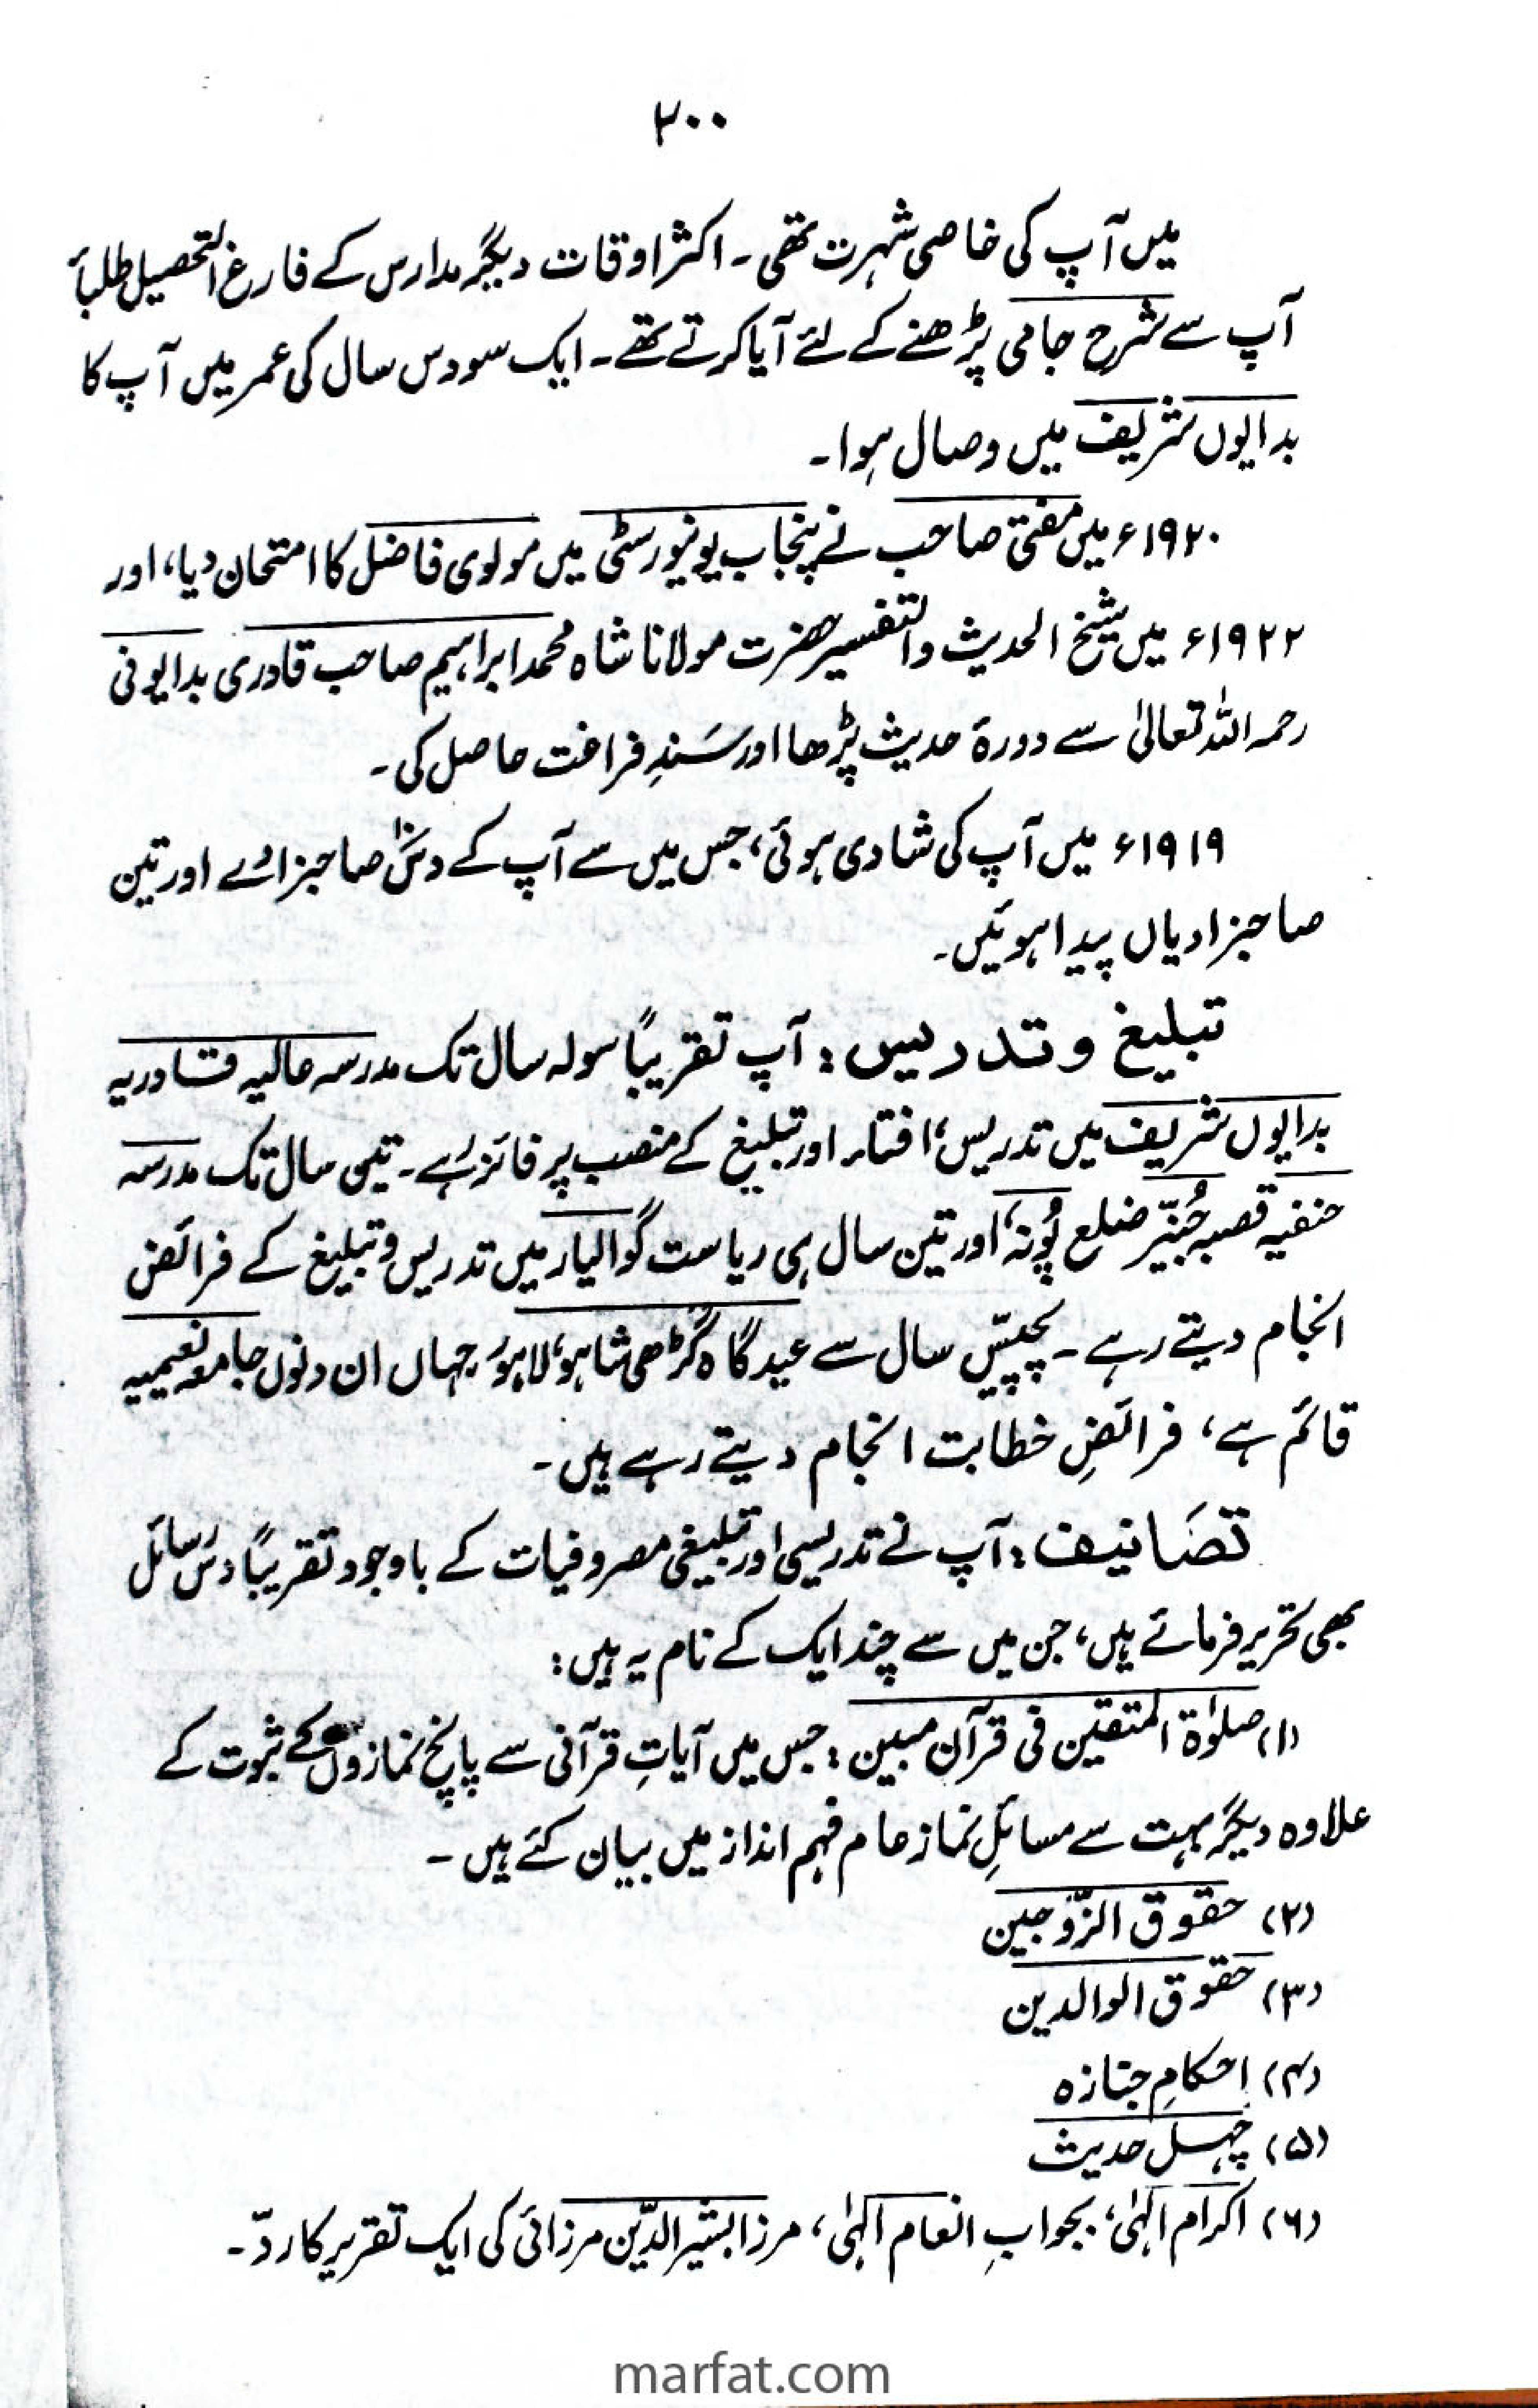 ۲۰۰
میں آپ کی خاصی شہرت تھی۔ اکثر اوقات دیگر مدارس کے فارغ التحصیل طلبأ
آپ سے شرح جامی پڑھنے کے لئے آیا کرتے تھے۔ ایک سو دس سال کی عمر میں آپ کا
بدایوں شریف میں وصال ہوا۔
۱۹۲۰ء میں مفتی صاحب نے پنجاب یونیورسٹی میں مولوی فاضل کا امتحان دیا، اور
۱۹۲۲ء میں شیخ الحدیث والتفسیر حضرت مولانا شاہ محمد ابراہیم صاحب قادری بدایونی
رحمہ اللہ تعالیٰ سے دورۂ حدیث پڑھا اور سَندِ فراغت حاصل کی۔
۱۹۱۹ء میں آپ کی شادی ہوئی، جس میں سے آپ کے دس صاحبزادے اور تین
صاحبزادیاں پیدا ہوئیں۔
تبلیغ و تدریس: آپ تقریباً سولہ سال تک مدرسہ عالیہ قادریہ
بدایوں شریف میں تدریس، افتاء اور تبلیغ کے منصب پر فائز رہے۔ تین سال تک مدرسہ
حنفیہ قصبہ جُنیّر ضلع پُونہ، اور تین سال ہی ریاست گوالیار میں تدریس و تبلیغ کے فرائض
انجام دیتے رہے۔ پچیّس سال سے عید گاہ گڑھی شاہو، لاہور جہاں ان دنوں جامعہ نعیمیہ
قائم ہے، فرائضِ خطابت انجام دیتے رہے ہیں۔
تصَانیف: آپ نے تدریسی اور تبلیغی مصروفیات کے باوجود تقریباً دس رسائل
بھی تحریر فرمائے ہیں، جن میں سے چند ایک کے نام یہ ہیں:
(۱) صلوٰۃ المتقین فی قرآن مبین: جس میں آیاتِ قرآنی سے پانچ نمازوں کے ثبوت کے
علاوہ دیگر بہت سے مسائلِ نماز عام فہم انداز میں بیان کئے ہیں۔
(۲) حقوق الزّوجین
(۳) حقوق الوالدین
(۴) احکامِ جنازہ
(۵) چہل حدیث
(۶) اکرام الٰہی، بجوابِ انعام الٰہی، مرزا بشیر الدّین مرزائی کی ایک تقریر کا ردّ۔
marfat.com